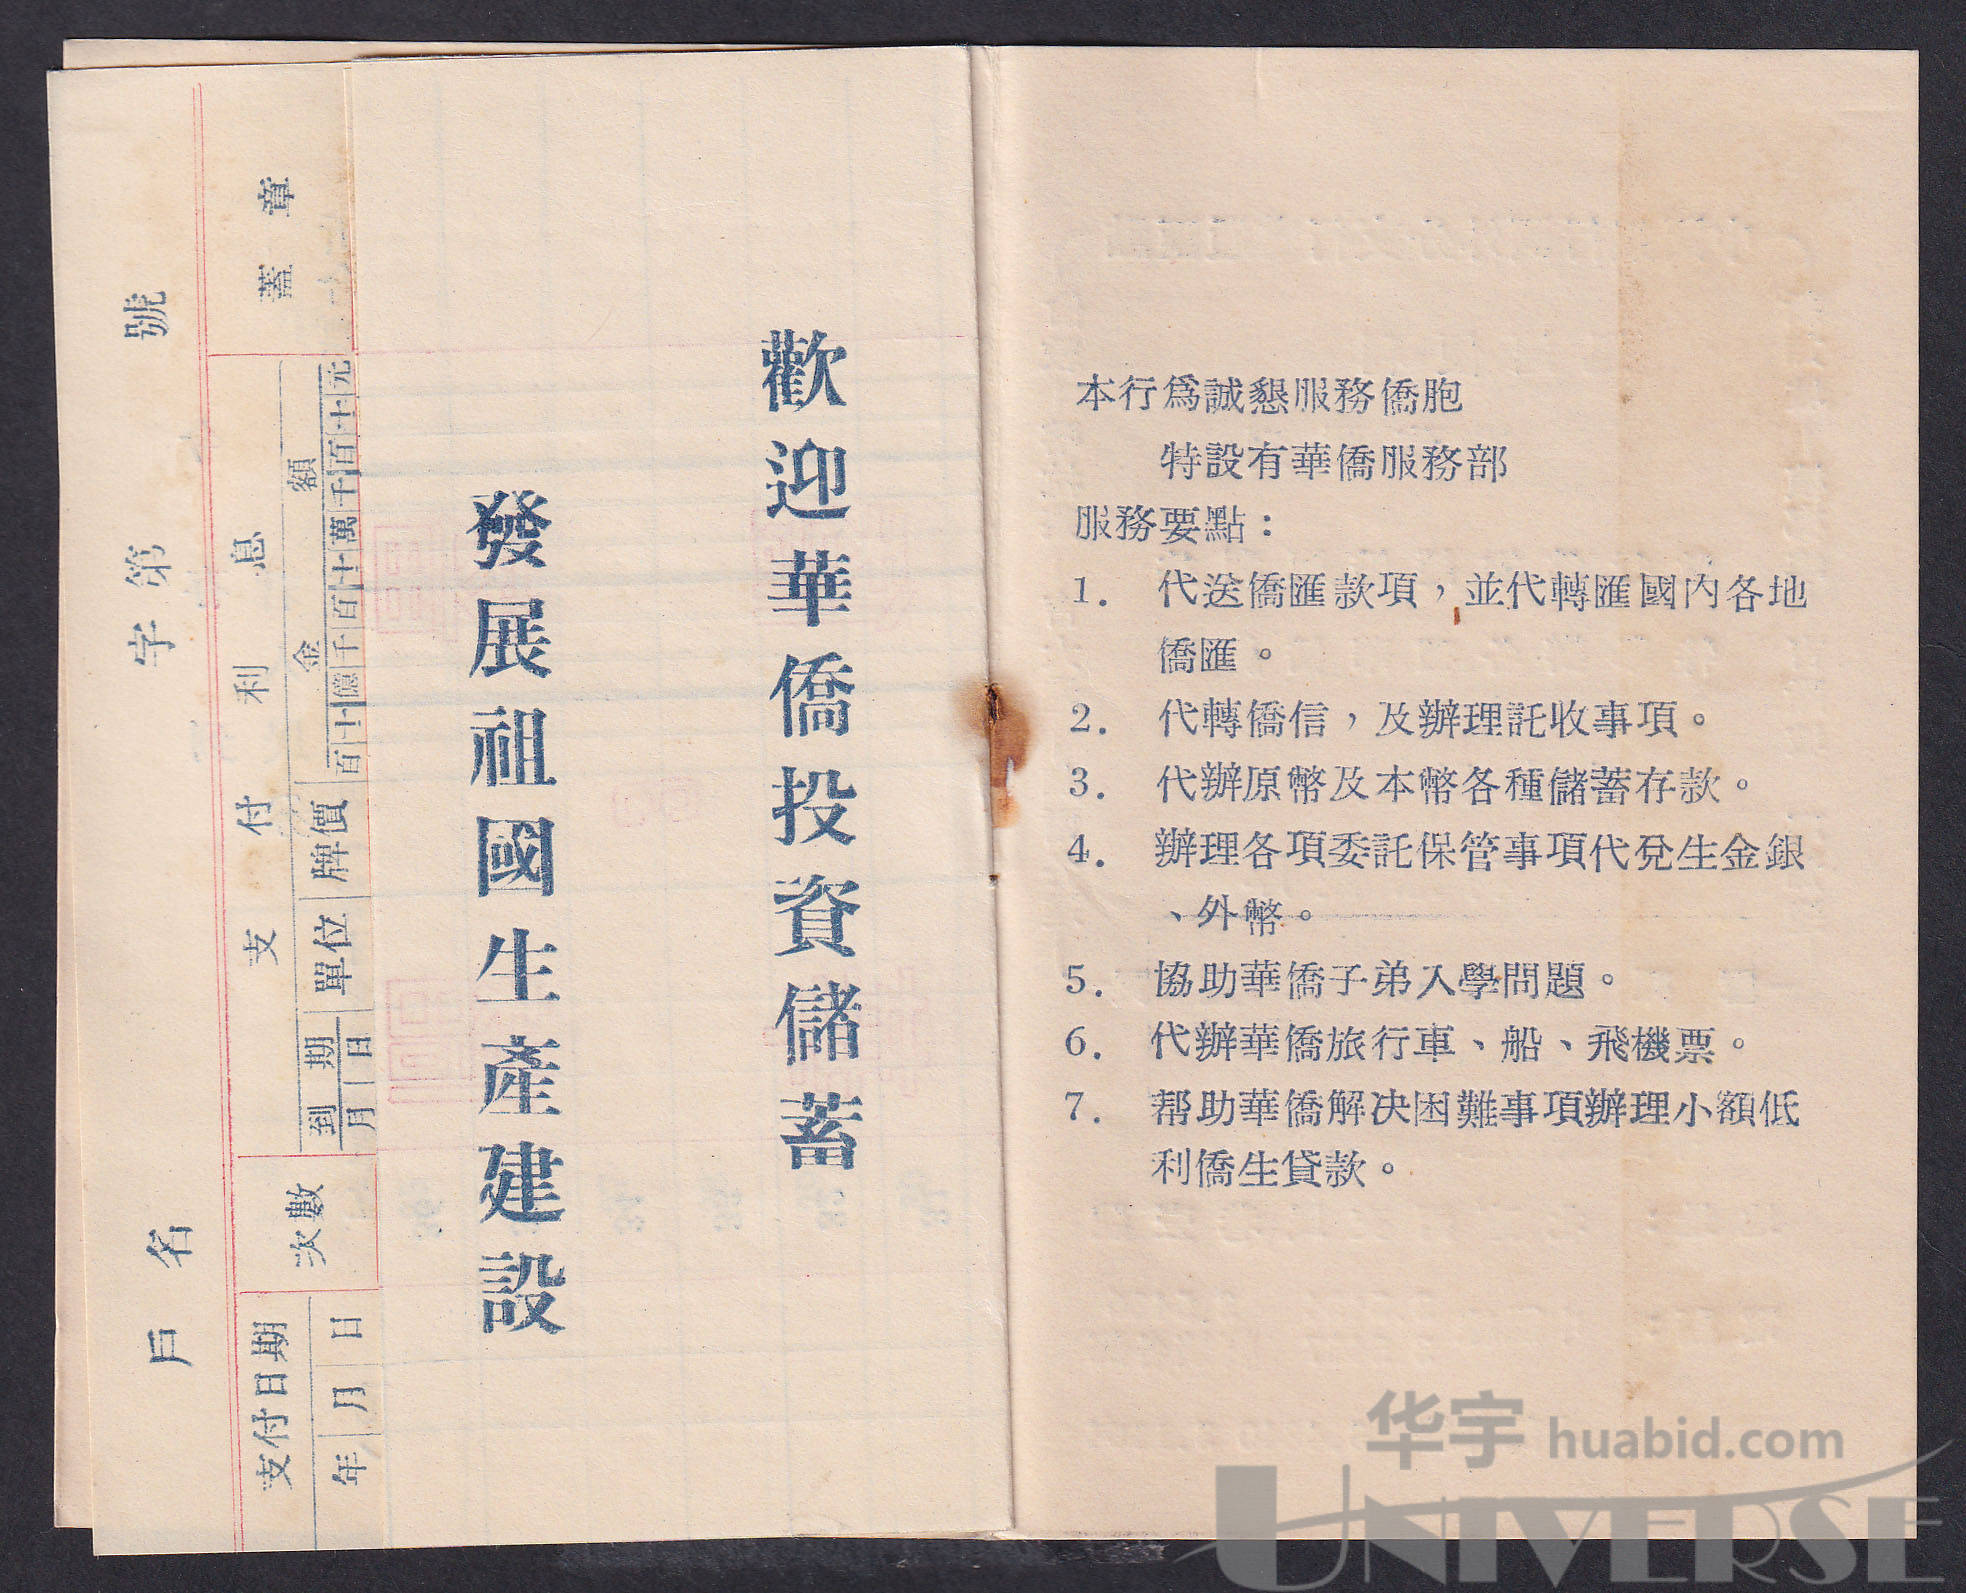 歡迎華僑投資儲蓄
發展祖國生產建設
本行爲誠懇服務僑胞
特設有華僑服務部
服務要點：
1. 代送僑匯款項，並代轉匯國內各地
僑匯。
2. 代轉僑信，及辦理託收事項。
3. 代辦原幣及本幣各種儲蓄存款。
4. 辦理各項委託保管事項代兌生金銀
、外幣。
5. 協助華僑子弟入學問題。
6. 代辦華僑旅行車、船、飛機票。
7. 帮助華僑解决困難事項辦理小額低
利僑生貸款。
戶名 字第 號
支付日期 次數 支付利息 蓋章
年 月 日 到期 單位 牌價 金額
月 日 百十億千百十萬千百十元
华宇 huabid.com
UNIVERSE